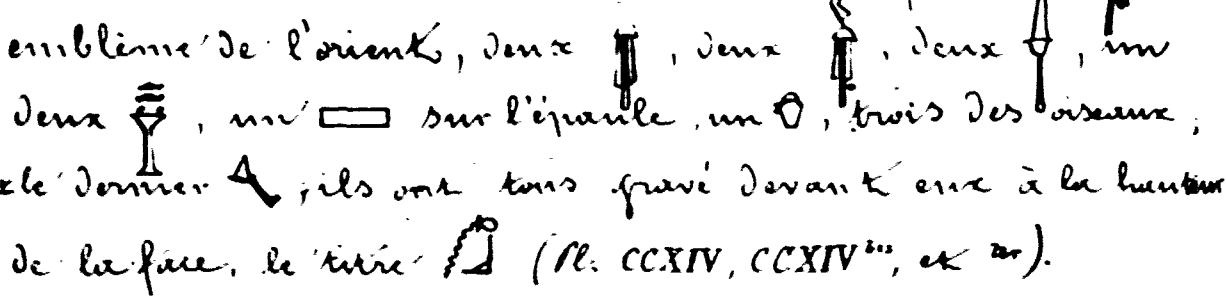 emblème de l'orient, deux , deux , deux , un
deux , un sur l'épaule, un , trois des oiseaux,
le dernier ; ils ont tous gravé devant eux à la hauteur
de la face, le titre (Pl. CCXIV, CCXIV bis, et ter).